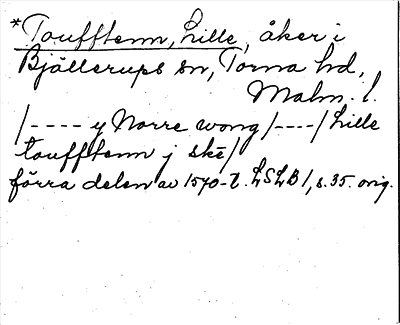 *Toufftenn, Lille, åker i
Bjällerups sn, Torna hd,
Malm. l.
/---- y Norre wong /----/ Lille
toufftenn j skē/
förra delen av 1570-t. LSLB 1, s. 35. orig.